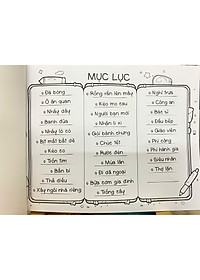 MỤC LỤC
Đá bóng
Ô ăn quan
Nhảy dây
Banh đũa
Nhảy lò cò
Bịt mắt bắt dê
Kéo co
Trốn tìm
Bắn bi
Thả diều
Xây ngôi nhà riêng
Rồng rắn lên mây
Kéo mo cau
Người bạn mới
Nhận lì xì
Gói bánh chưng
Chúc Tết
Rước đèn
Múa lân
Đi dã ngoại
Bữa cơm gia đình
Trồng cây
Nghỉ trưa
Công an
Bác sĩ
Đầu bếp
Giáo viên
Phi công
Phi hành gia
Siêu nhân
Thợ lặn